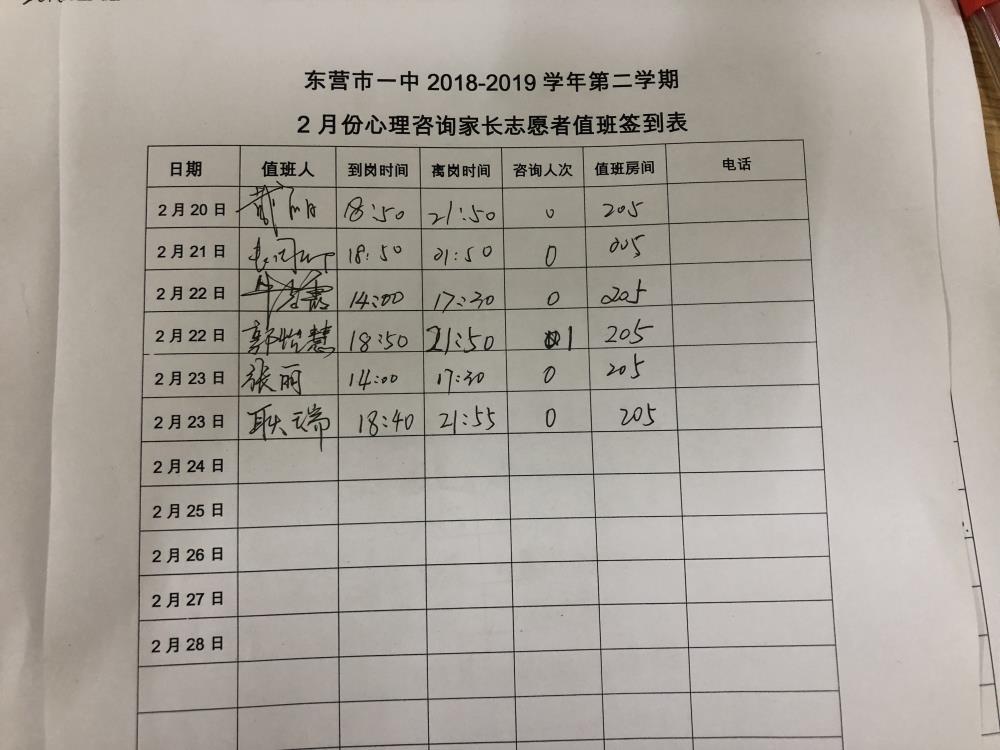 东营市一中 2018-2019 学年第二学期
2 月份心理咨询家长志愿者值班签到表
日期 值班人 到岗时间 离岗时间 咨询人次 值班房间 电话
2 月 20 日 18:50 21:50 0 205
2 月 21 日 18:50 21:50 0 205
2 月 22 日 14:00 17:30 0 205
2 月 22 日 郭怡慧 18:50 21:50 1 205
2 月 23 日 张丽 14:00 17:30 0 205
2 月 23 日 耿瑞 18:40 21:55 0 205
2 月 24 日
2 月 25 日
2 月 26 日
2 月 27 日
2 月 28 日